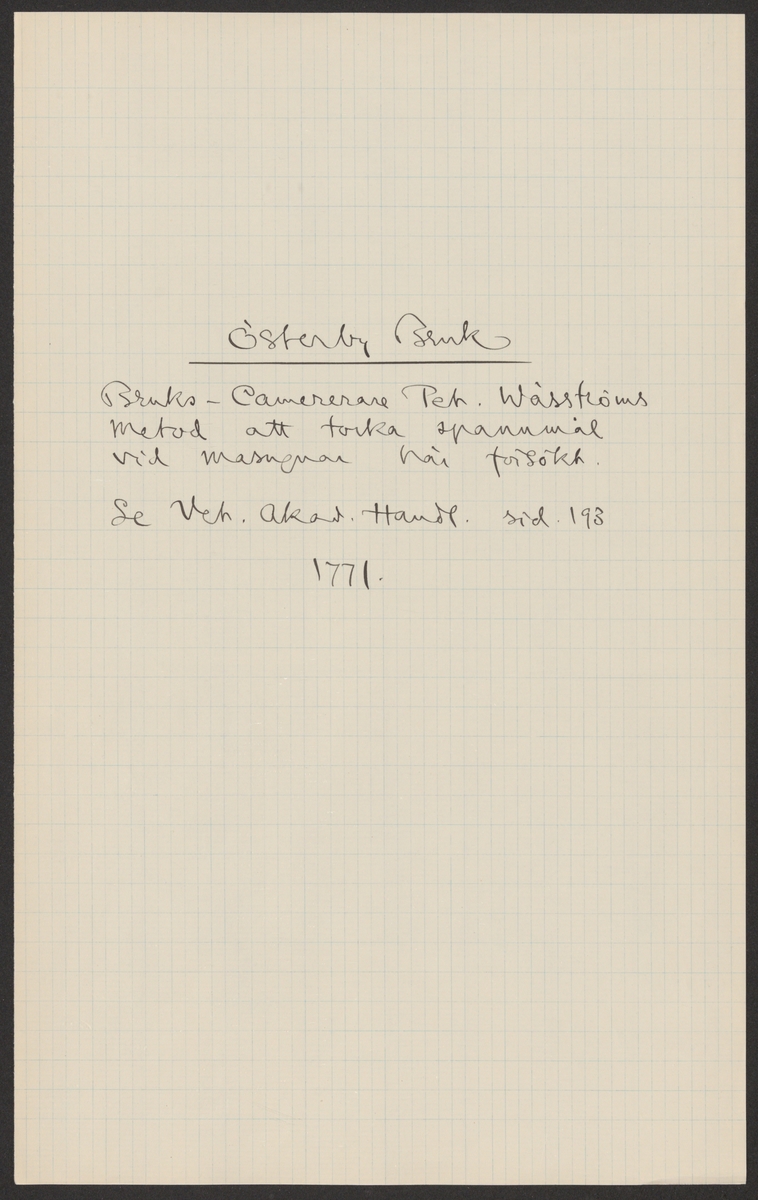 Österby Bruk
Bruks-Camererare Pet. Wässtroms
Metod att torka spannmål
vid masugnar här försökt.
Se Vet. Akad. Handl. sid. 193
1771.